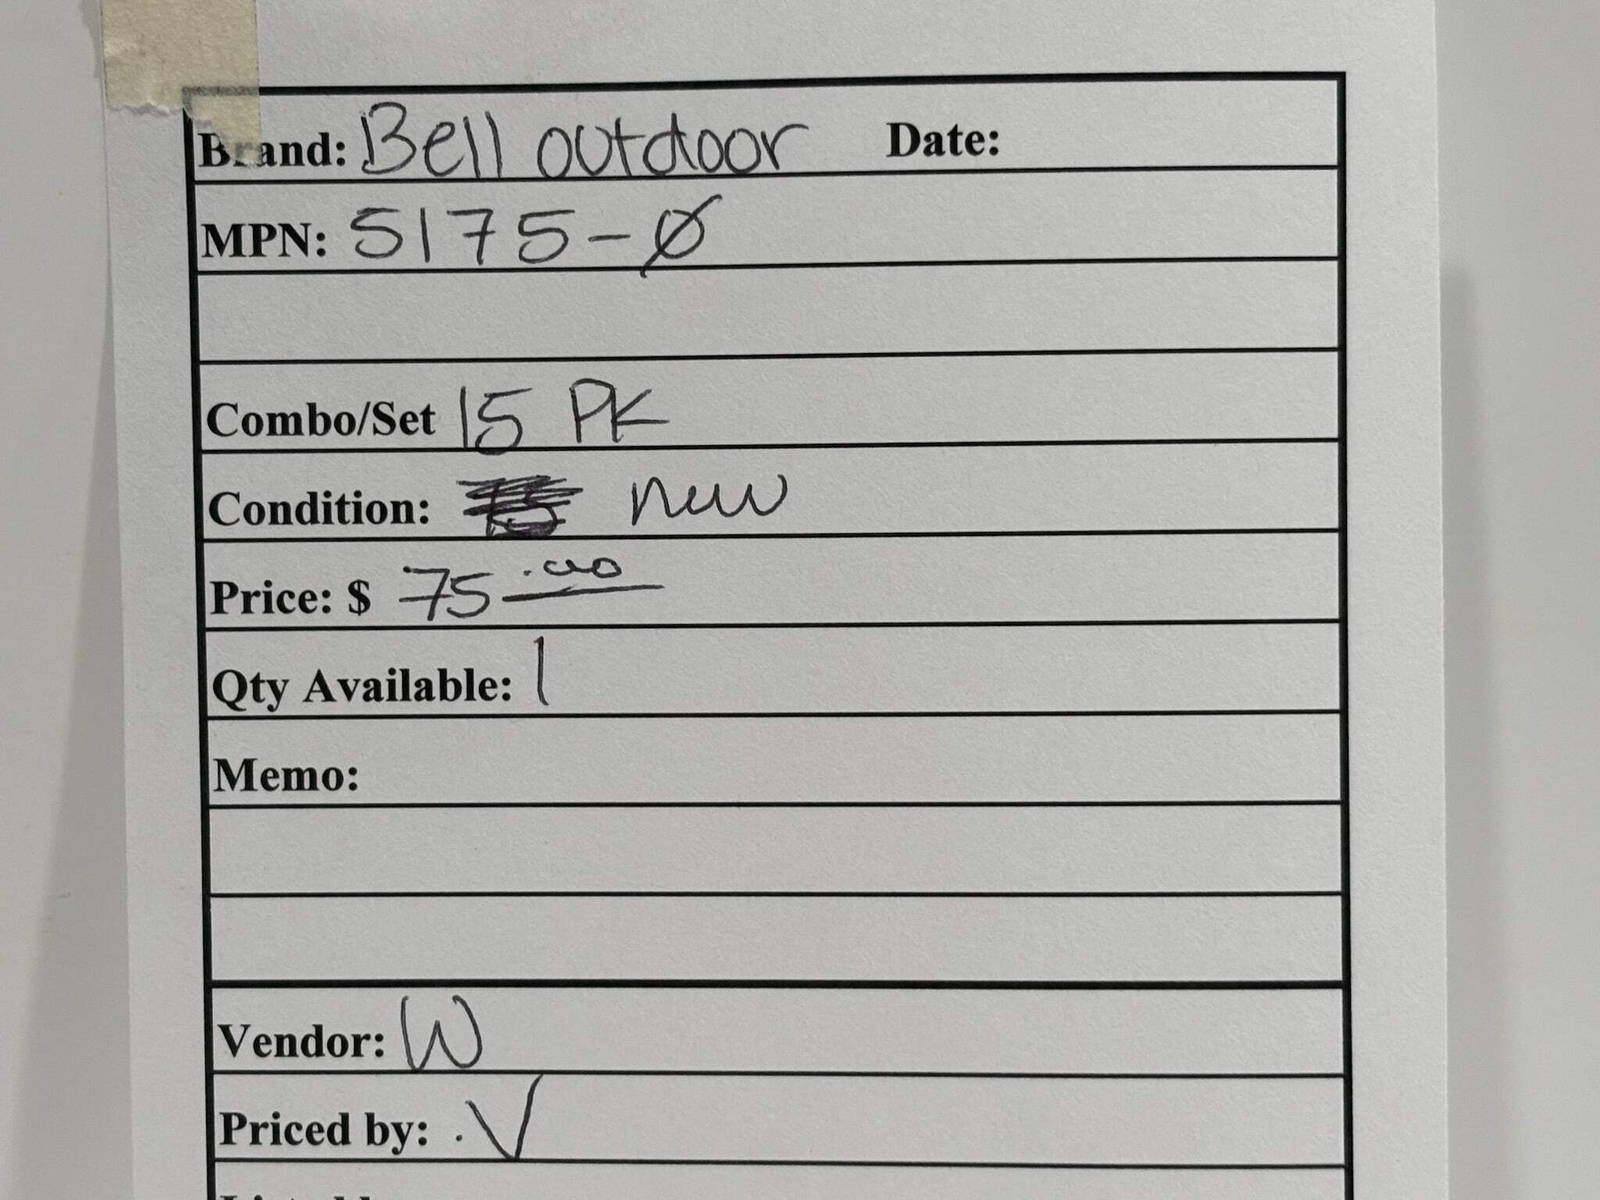 Brand: Bell outdoor Date:
MPN: 5175-Ø
Combo/Set 15 PK
Condition: new
Price: $ 75.00
Qty Available: 1
Memo:
Vendor: W
Priced by: .V